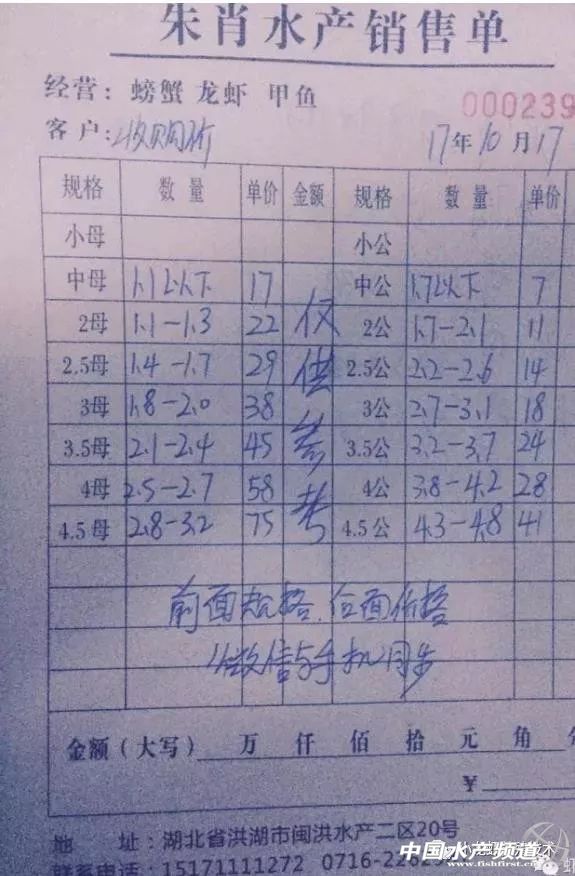 朱肖水产销售单
经营: 螃蟹 龙虾 甲鱼
000239
客户: 收购价 17年10月17
规格 数量 单价 金额 规格 数量 单价
小母 小公
中母 1.1以下 17 中公 1.7以下 7
2母 1.1-1.3 22 仅 2公 1.7-2.1 11
2.5母 1.4-1.7 29 供 2.5公 2.2-2.6 14
3母 1.8-2.0 38 3公 2.7-3.1 18
3.5母 2.1-2.4 45 参 3.5公 3.2-3.7 24
4母 2.5-2.7 58 考 4公 3.8-4.2 28
4.5母 2.8-3.2 75 4.5公 4.3-4.8 41
前面规格.后面价格
以微信与手机同步
金额(大写) 万 仟 佰 拾 元 角
¥
地 址: 湖北省洪湖市闽洪水产二区20号
系电话: 15171111272 0716-226
中国水产频道
www.fishfirst.cn